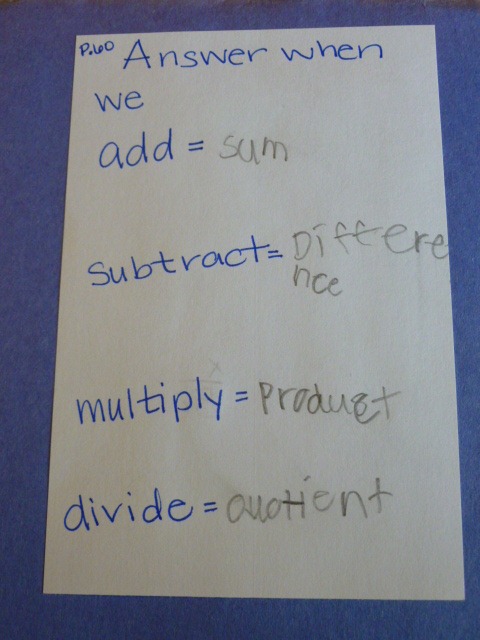 P.60 Answer when
we
add = sum
subtract = Differe
nce
multiply = Product
divide = quotient